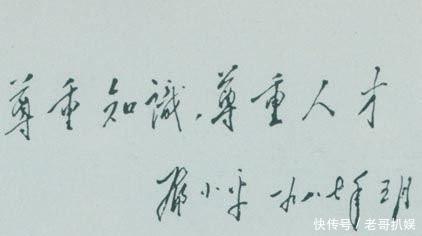 尊重知識,尊重人才
鄧小平 一九八七年三月
快传号/老哥扒娱